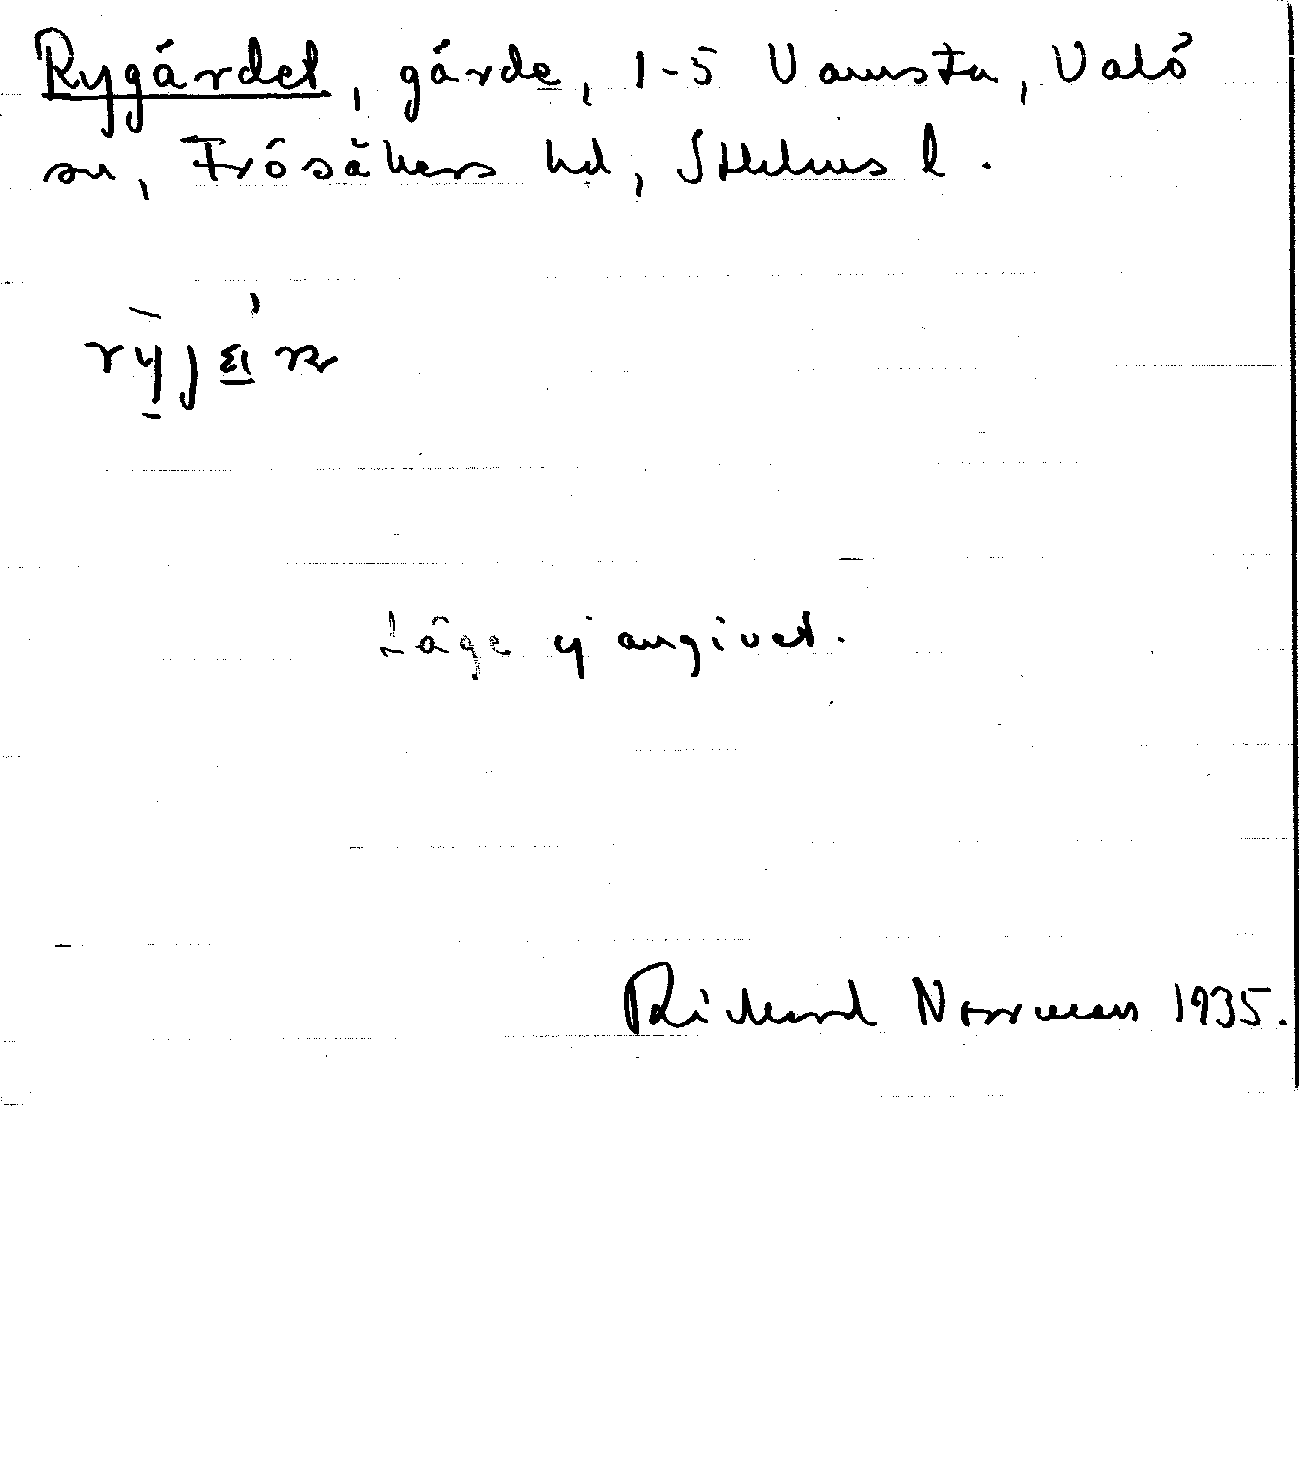 Rygärdet, gärde, 1-5 Vamsta, Valö
sn, Frösåkers hd, Sthlms l.
Läge ej angivet.
Rickard Norrman 1935.